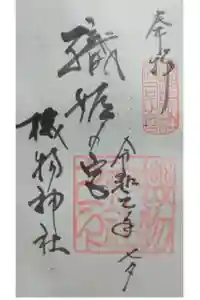 奉拝
織姫の宮
令和元年 七夕
機物神社